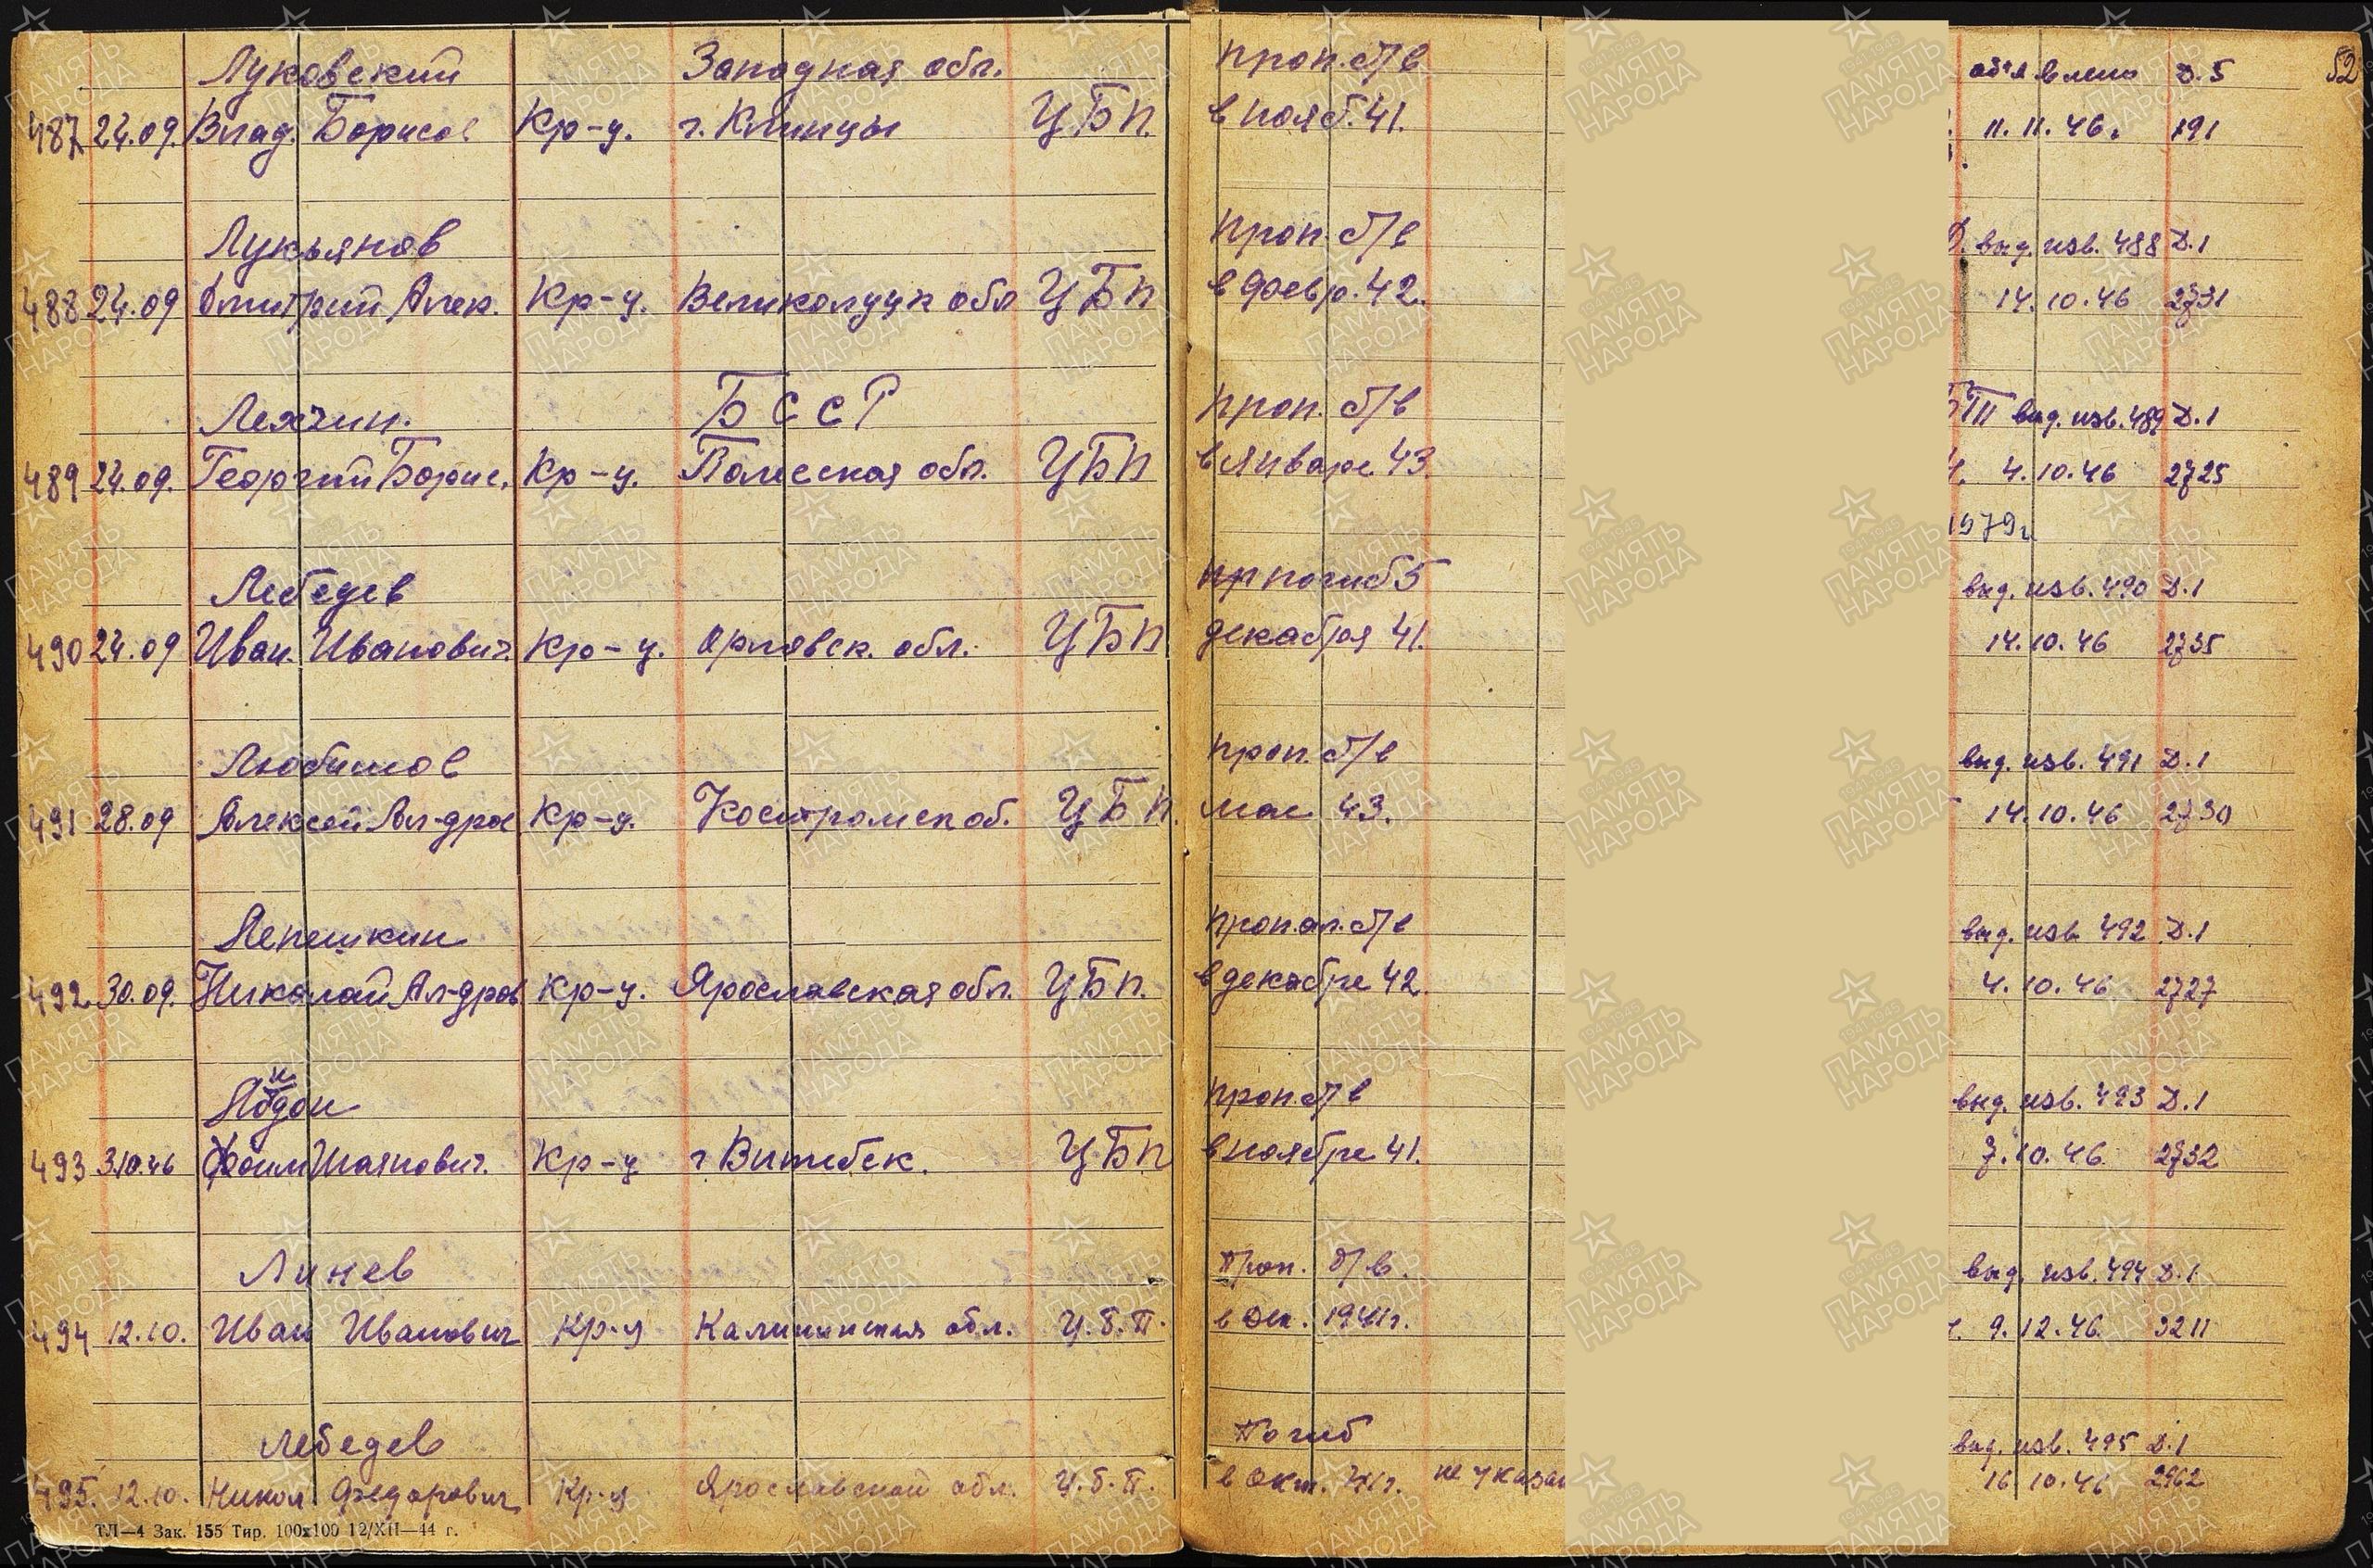 Луковский Западная обл. проп. б/в объявлено Д.5 52
487 24.09. Влад. Борисов Кр-ц. г. Клинцы ЦБП. в нояб. 41. 11.11.46. 191
Лукьянов проп. б/в выд. изв. 488 Д.1
488 24.09 Дмитрий Алек. Кр-ц. Великолуцк обл ЦБП в февр. 42. 14.10.46 2731
Лехчин. БССР проп. б/в выд. изв. 489 Д.1
489 24.09. Георгий Борис. Кр-ц. Полесская обл. ЦБП в январе 43 4.10.46 2725
1979г
Лебедев погиб 5 выд. изв. 490 Д.1
490 24.09 Иван. Иванович. Кр-ц. Орловск. обл. ЦБП декабря 41. 14.10.46 2735
Любимов проп. б/в выд. изв. 491 Д.1
491 28.09 Алексей Ал-дров Кр-ц. Костромск об. ЦБП. мае 43. 14.10.46 2730
Лепешкин пропал. б/в выд. изв 492 Д.1
492 30.09. Николай Ал-дров Кр-ц. Ярославская обл. ЦБП. в декабре 42. 4.10.46 2727
проп. б/в выд. изв. 493 Д.1
493 3.10.46 Кр-ц г Витебск. ЦБП в ноябре 41. 7.10.46 2732
Линев Проп. б/в. выд. изв. 494 Д.1
494 12.10. Иван Иванович Кр-ц Калининская обл. Ц.Б.П. в Дек. 1941г. 9.12.46 3211
Лебедев Погиб выд. изв. 495 Д.1
495. 12.10. Никол. Федорович Кр-ц Ярославской обл. Ц.Б.П. в Окт. 41г. не указан 16.10.46 2962
ТЛ—4 Зак. 155 Тир. 100х100 12/XII—44 г.